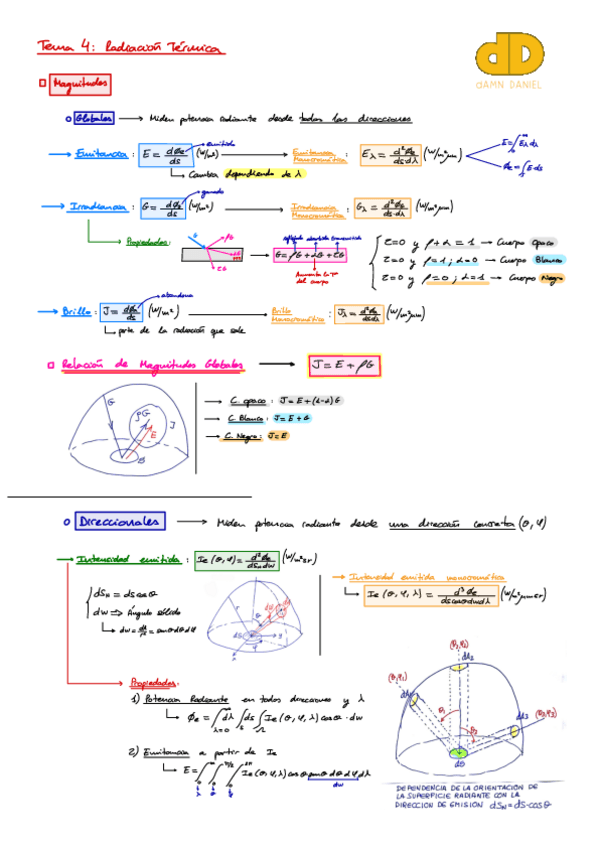 Tema 4: Radiación Térmica
DAMN DANIEL
Magnitudes
Globales → Miden potencia radiante desde todas las direcciones
Emitancia : E = dϕe/ds (W/m²) emitida
Emitancia Monocromática : Eλ = d²ϕe/ds·dλ (W/m²μm)
Cambia dependiendo de λ
Irradiancia : G = dϕs/ds (W/m²)
Irradiancia Monocromática : Gλ = (W/m²μm)
Propiedades:
G = ρG + αG + τG
reflejada absorbida transmitida
Aumenta la Tª del cuerpo
τ=0 y ρ+α=1 → Cuerpo Opaco
τ=0 y ρ=1; α=0 → Cuerpo Blanco
τ=0 y ρ=0; α=1 → Cuerpo Negro
Brillo : J = (W/m²) abandona
Brillo Monocromático : Jλ = (W/m²μm)
parte de la radiación que sale
Relación de Magnitudes Globales → J = E + ρG
C. opaco : J = E + (1-α)G
C. Blanco : J = E + G
C. Negro : J = E
Direccionales → Miden potencia radiante desde una dirección concreta (θ, φ)
Intensidad emitida : Ie (θ, φ) = d²ϕe/dsₙdw (W/m²sr)
Intensidad emitida monocromática
Ie (θ, φ, λ) = d³ϕe/dscosθdwdλ (W/m²μm sr)
dsₙ = ds cosθ
dw => Ángulo sólido
Propiedades:
1) Potencia Radiante en todas direcciones y λ
2) Emitancia a partir de Ie
DEPENDENCIA DE LA ORIENTACIÓN DE
LA SUPERFICIE RADIANTE CON LA
DIRECCION DE EMISIÓN dSₙ = ds·cosθ